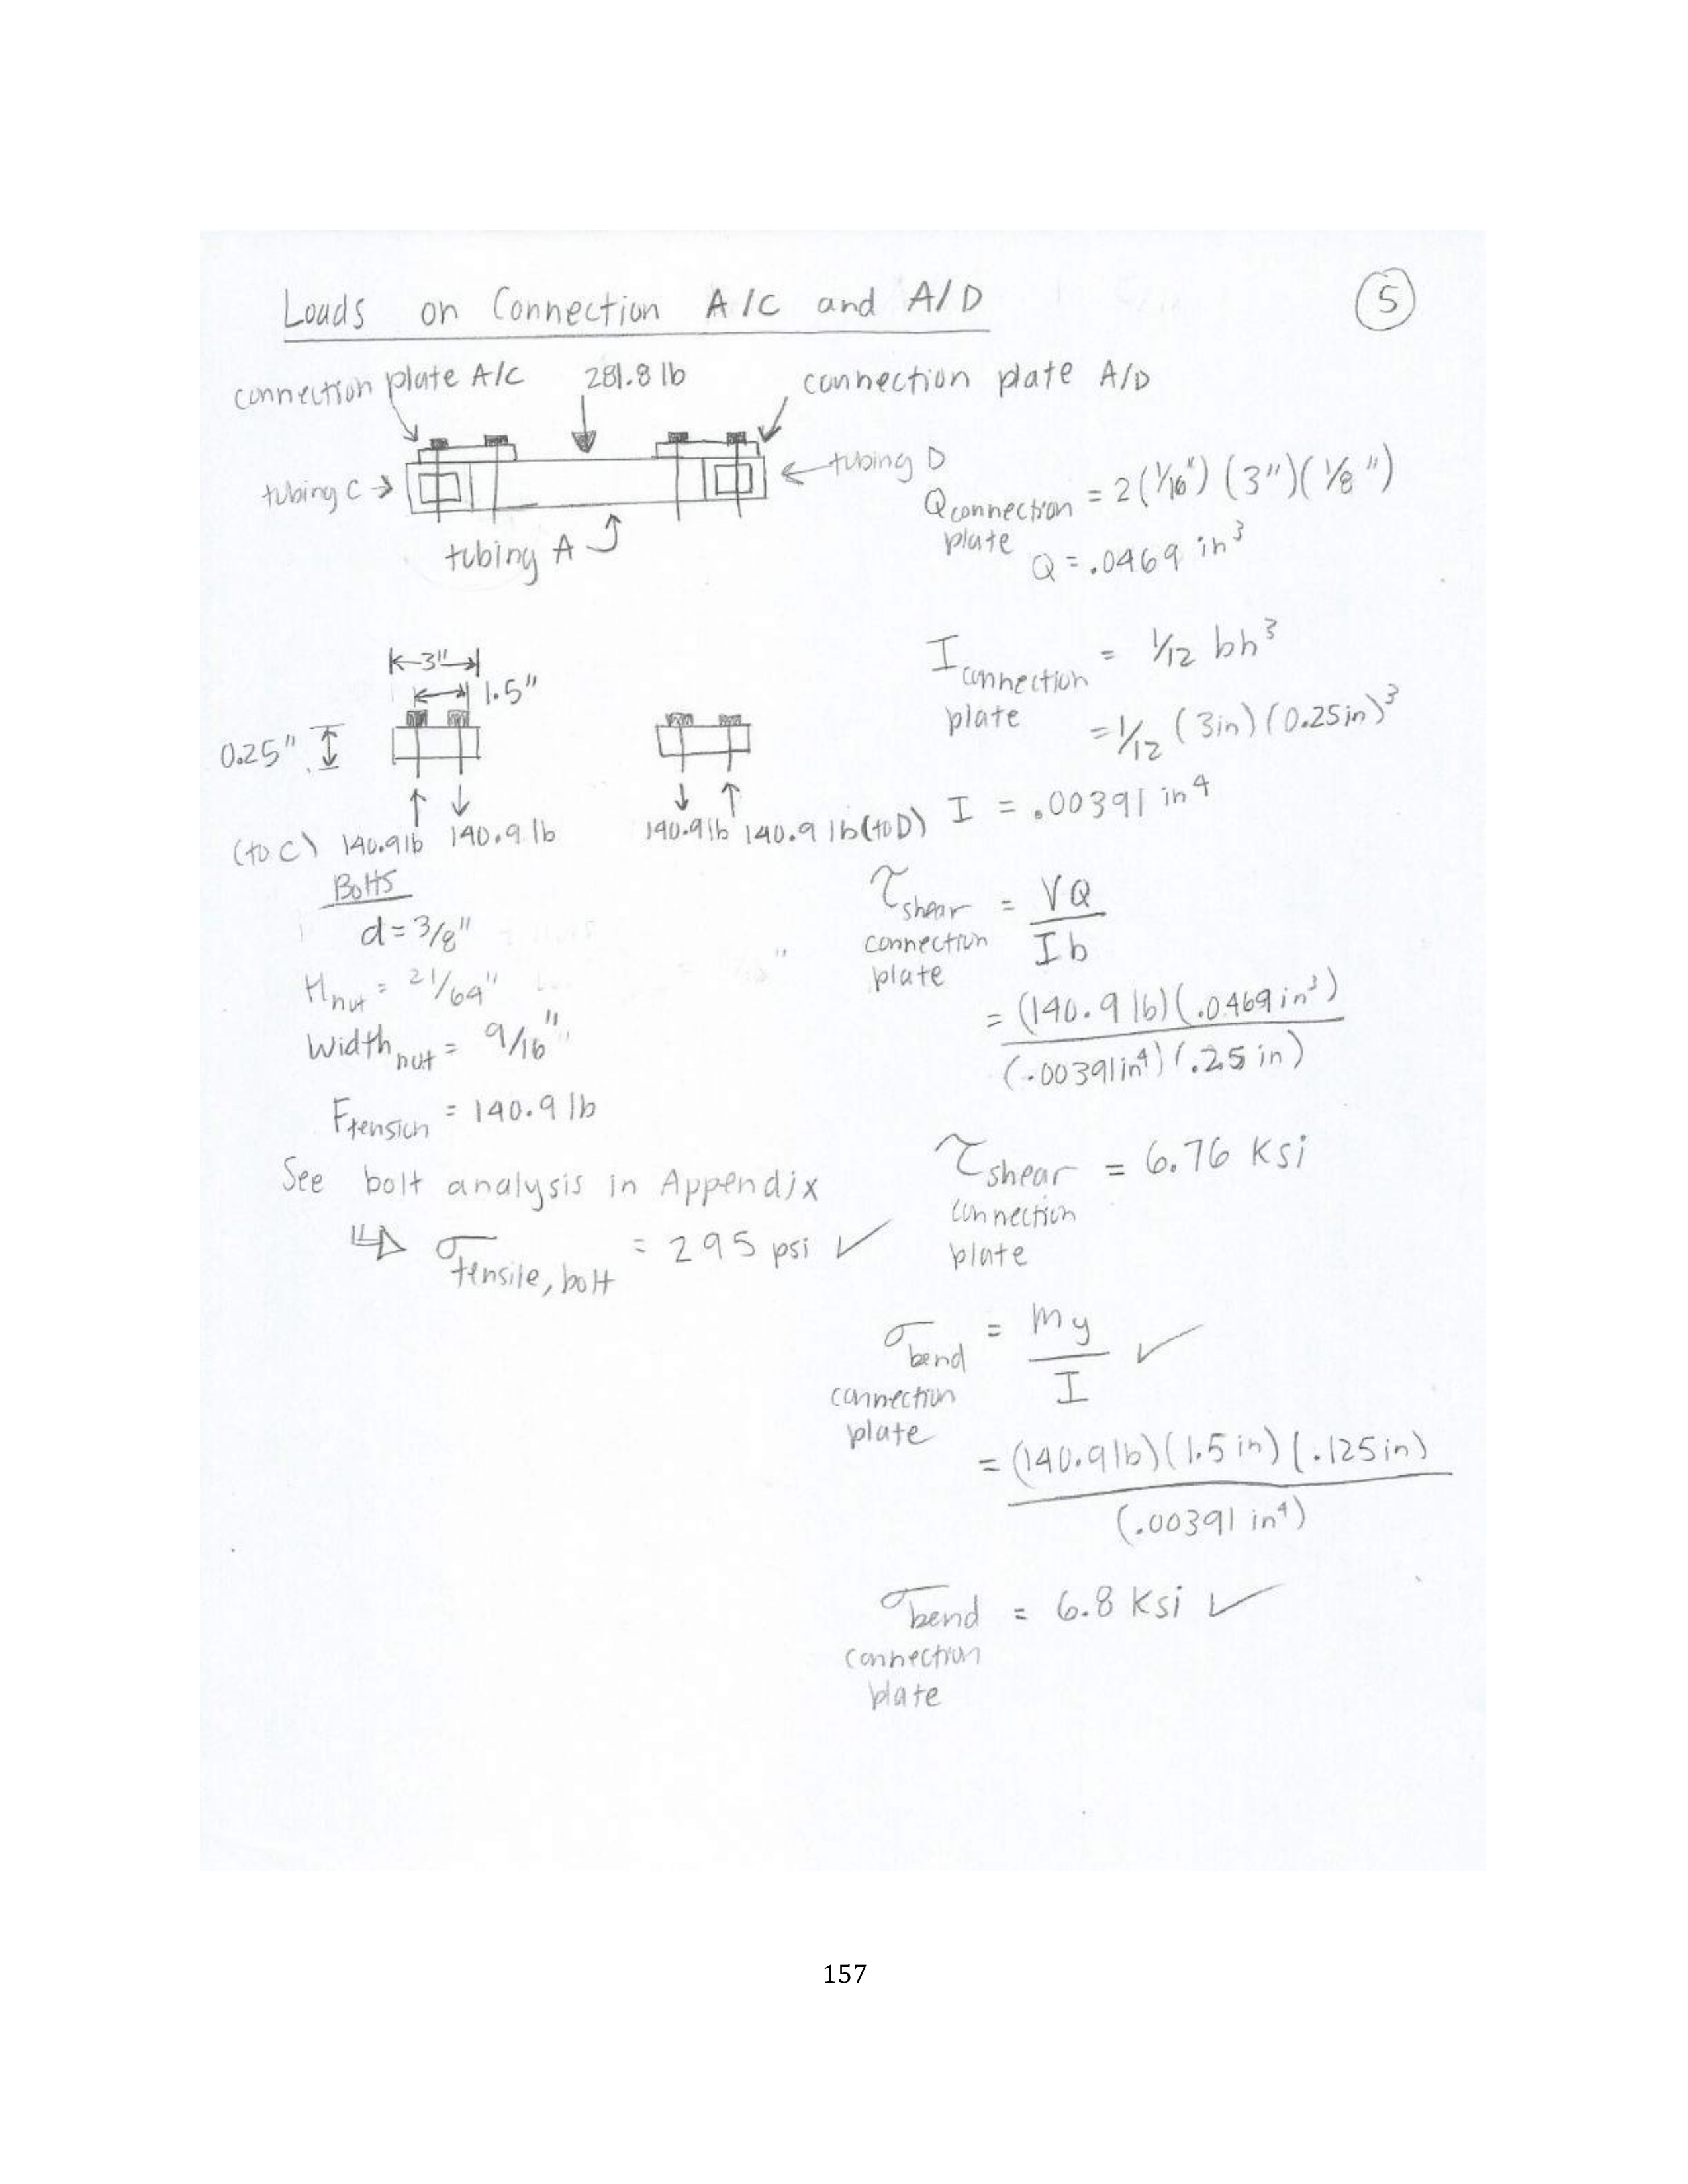 Loads on Connection A/C and A/D
5
connection plate A/C
281.8 lb
connection plate A/D
tubing C
tubing D
tubing A
Qconnection plate = 2(1/16")(3")(1/8")
Q = .0469 in³
3"
1.5"
0.25"
(to C) 140.9lb 140.9 lb
140.9lb 140.9 lb(to D)
Iconnection plate = 1/12 bh³
= 1/12 (3in)(0.25in)³
I = .00391 in⁴
Bolts
d = 3/8"
Hnut = 21/64"
Widthnut = 9/16"
Ftension = 140.9 lb
See bolt analysis in Appendix
σtensile, bolt = 295 psi ✓
τshear connection plate = VQ / Ib
= (140.9 lb)(.0469in³) / (.00391in⁴)(.25 in)
τshear connection plate = 6.76 Ksi
σbend connection plate = My / I ✓
= (140.9lb)(1.5 in)(.125in) / (.00391 in⁴)
σbend connection plate = 6.8 Ksi ✓
157